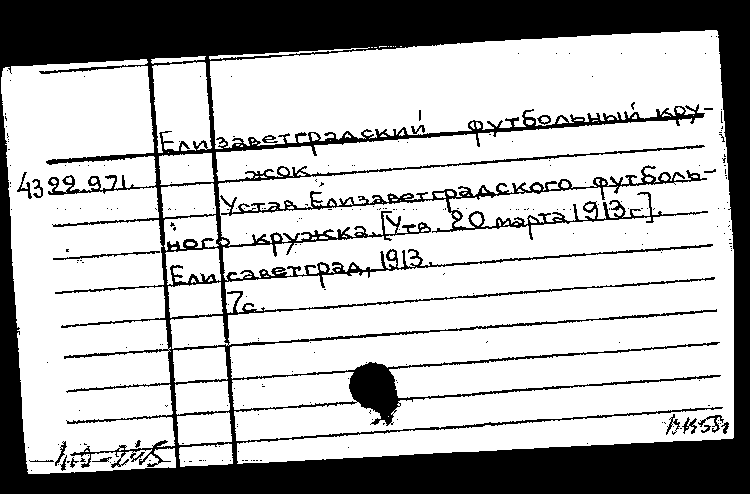 Елизаветградский футбольный кру-
жок.
43 22.971.
Устав Елизаветградского футболь-
ного кружка. [Утв. 20 марта 1913 г.].
Елисаветград, 1913.
7 с.